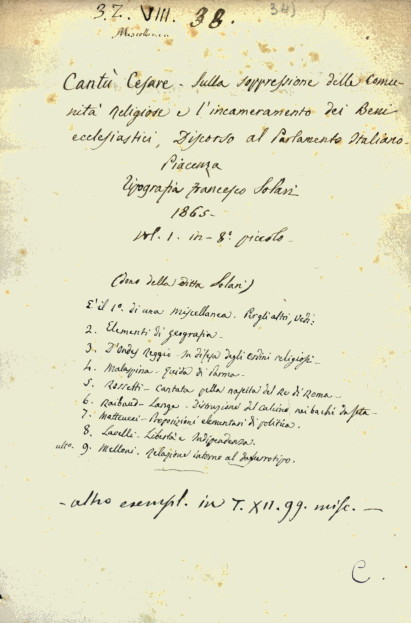 3.Z. VIII. 38. 34)
Miscellanea
Cantù Cesare - Sulla soppressione delle Comu-
nità religiose e l'incameramento dei Beni
ecclesiastici, Discorso al Parlamento Italiano -
Piacenza
Tipografia Francesco Solari
1865 -
vol. 1. in - 8.° piccolo -
(dono della ditta Solari)
E' il 1.° di una miscellanea. Per gli altri, vedi:
2. Elementi di geografia -
3. D'Ondes Reggio - In difesa degli ordini religiosi -
4. Malaspina - Guida di Parma -
5. Rossetti - Cantata pella nascita del Re di Roma -
6. Raibaud - Lange - Distruzione del calcino nei bachi da seta -
7. Matteucci - Proposizioni elementari di politica.
8. Lavelli - Libertà e Indipendenza.
ulto. 9. Melloni. Relazione intorno al dagherrotipo.
- altro esempl. in T. XII. 99. misc. -
C.